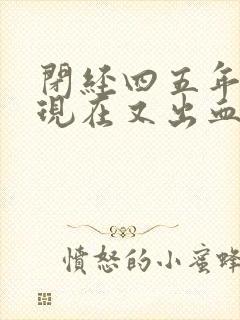 閉經四五年
現在又出血
憤怒的小蜜蜂